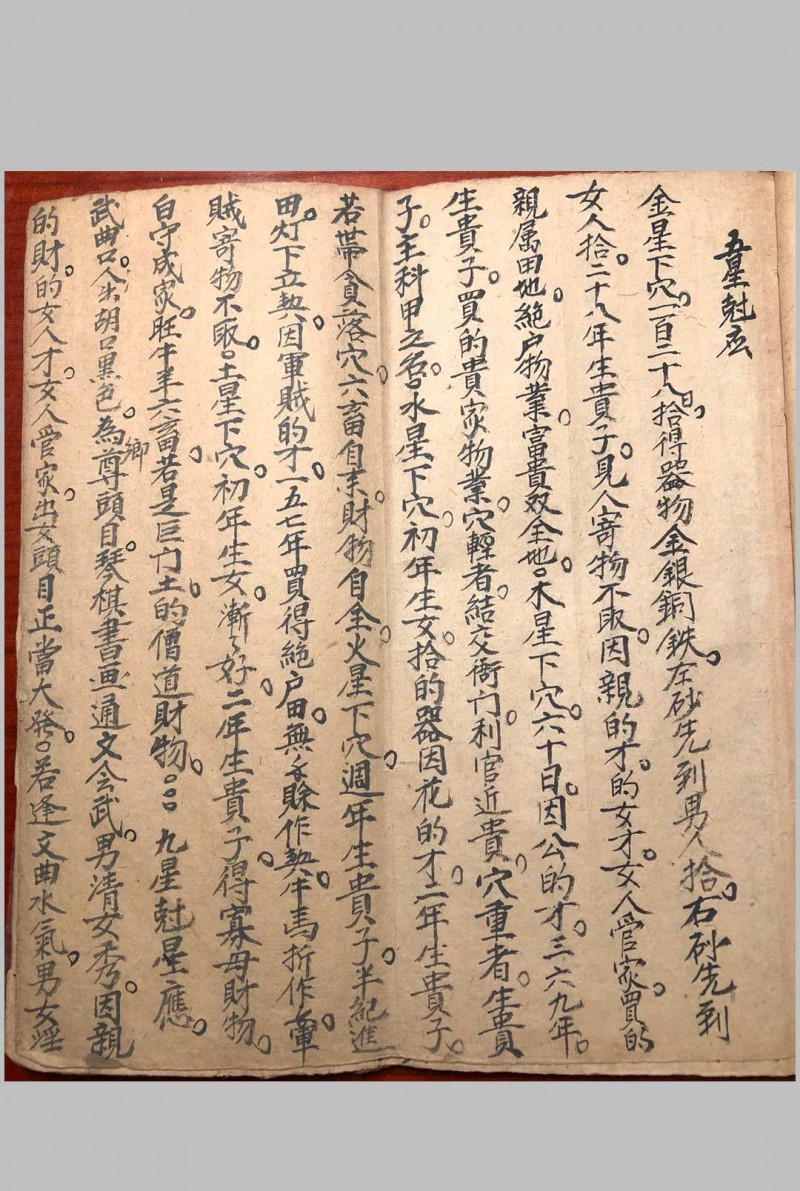 五星尅应
金星下穴。一百二十八日。拾得器物金銀銅鉄。左砂先到男人拾。右砂先到
女人拾。二十八年生貴子。見人寄物不取。因親的才。的女才。女人管家。買的
親属田地。絶户物業。富貴双全地。木星下穴。六十日。因公的才。三六九年。
生貴子。買的貴家物業。穴輕者。結交衙门。利官近貴。穴重者。生貴
子。主科甲之名。水星下穴。初年生女。拾的器。因花的才。二年生貴子。
若带貪落穴。六畜自来。財物自全。火星下穴。週年生貴子。半紀進
田。灯下立契。因軍賊的才。一五七年買得絶户田。無手賒作契。牛馬折作
賊寄物不取。土星下穴。初年生女。漸々好。二年生貴子。得寡母財物。
白守成家。旺牛羊六畜。若是巨门土。的僧道財物。 九星尅星應。
武曲口人出胡口黑色。為鄉尊頭目。琴棋書画。通文会武。男清女秀。因親
的財。的女人才。女人管家。出女頭目正當大發。若逢文曲水氣。男女淫